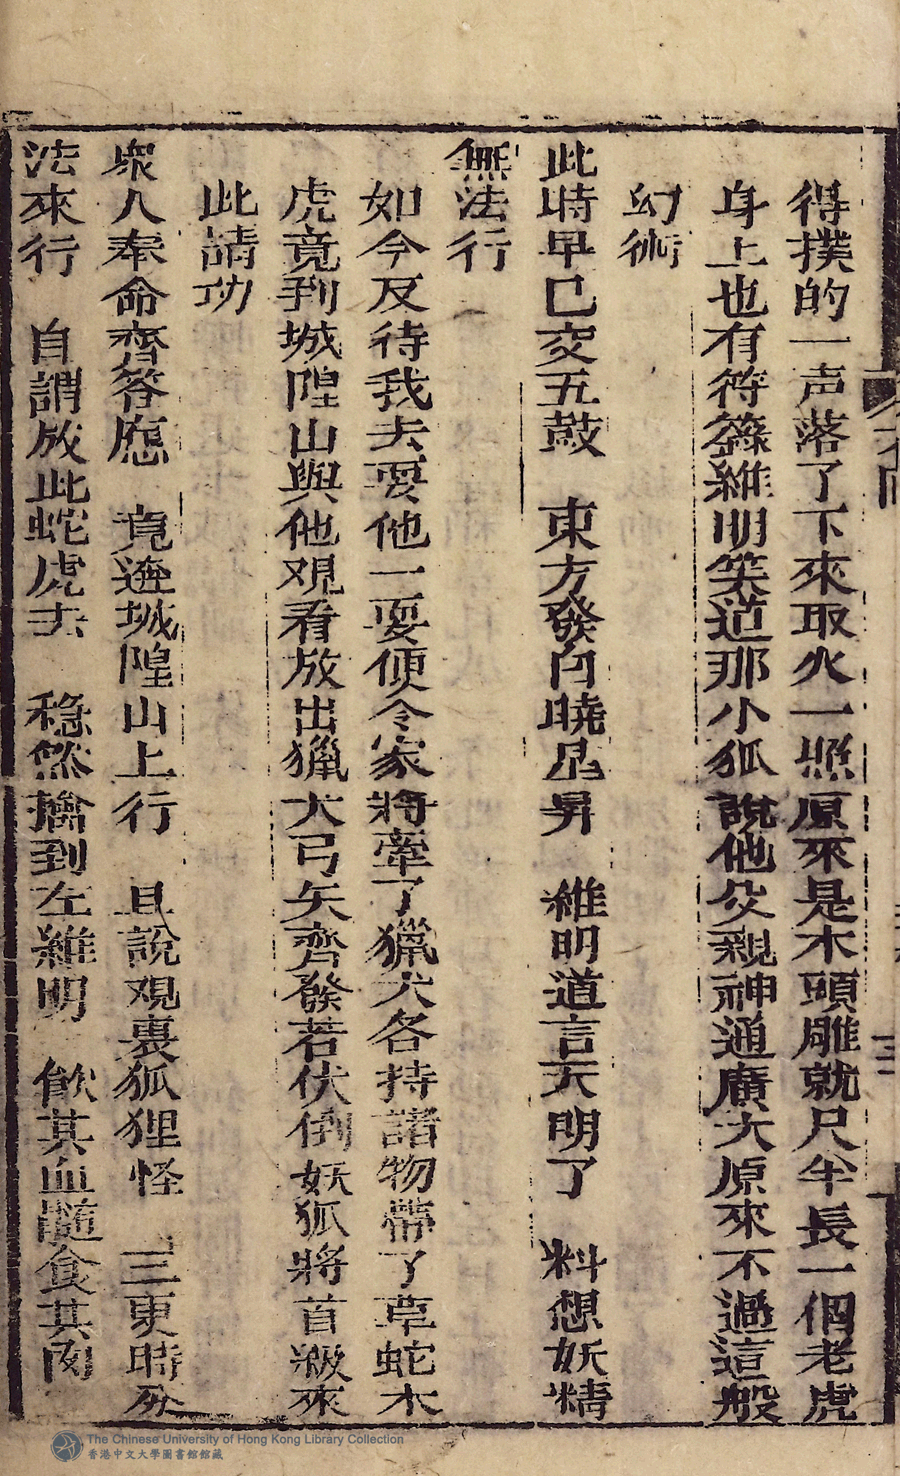 得撲的一声落了下來取火一照原來是木頭雕就尺半長一個老虎
身上也有符籙維明笑道那小狐說他父親神通廣大原來不過這般
幻術
此時早已交五鼓　東方發白曉星昇　維明道言天明了　料想妖精
無法行
如今反待我去耍他一耍便令家將牽了獵犬各持諸物帶了草蛇木
虎竟到城隍山與他观看放出獵犬弓矢齊發若伏倒妖狐將首級來
此請功
衆人奉命齊答應　竟進城隍山上行　且說观裏狐狸怪　三更時分
法來行　自謂放此蛇虎去　穩然擒到左維明　飲其血髓食其肉
The Chinese University of Hong Kong Library Collection
香港中文大學圖書館館藏